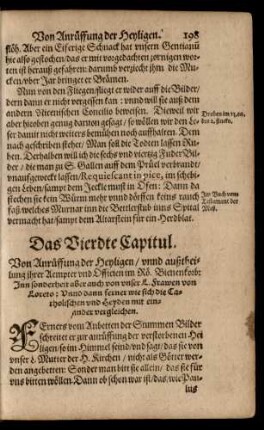 Von Anrüffung der Heyligen. 198
flöh. Aber ein Eiferige Schnack hat vnsern Gentianū
hie also gestochen/ das er mit vorgedachten zornigen wor-
ten ist herauß gefahren: darumb verzicht jhm die Mu-
cken/ aber Jar bringet er Brämen.
Nun von den Fliegen fliegt er wider auff die Bilder/
dann er nicht vergessen kan: vnnd will sie auß dem
andern Nicenischen Concilio beweisen. Dieweil wir
aber hieoben genug darvon gesagt/ so wöllen wir den Le-
ser damit nicht weiters bemühen noch auffhalten. Dem
nach geschriben stehet/ Man soll die Todten lassen Ru-
hen. Derhalben will ich die sechs vnd viertzig Fuder Bil-
der/ die man zu S. Gallen auff dem Prüel verbrandt/
vnaufgeweckt lassen/ Requiescant in pice, im scheibi-
gen Leben/ sampt dem Jeckle must in Ofen: Dann da
stechen sie kein Würm mehr vnnd dörffen nicht rauch
faß welches Murnar inn die Bettlerstub inns Spital
vermacht hat/ sampt dem Altarstein für ein Herdblat.
Droben im 13. cr.
des 2. stucks.
Im Buch vom
Testament der
Meß.
Das Vierdte Capitul.
Von Anrüffung der Heyligen/ vnnd außthei-
lung jhrer Aempter vnd Officien im Rö. Bienenkorb:
Inn sonderheit aber auch von vnser L. Frawen von
Loreto: Vnnd dann ferner wie sich die Ca-
tholischen vnd Heyden mit ein-
ander vergleichen.
FErners vom Anbetten der Stummen Bilder
schreitet er zur anrüffung der verstorbenen Hei-
ligen so im Himmel seind/ vnd sagt/ das sie von
vnser L. Mutter der H. Kirchen/ nicht als Götter wer-
den angebetten: Sonder man bitt sie allein/ das sie für
vns bitten wöllen. Dann ob schon war ist/ das/ wie Pau-
lus